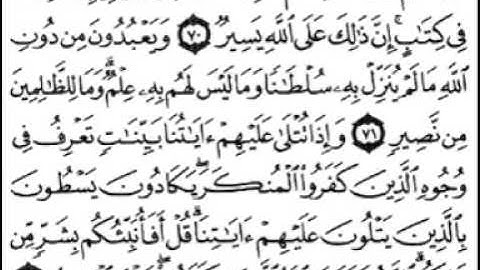 فِى كِتَٰبٍ ۚ إِنَّ ذَٰلِكَ عَلَى ٱللَّهِ يَسِيرٌ ٧٠ وَيَعْبُدُونَ مِن دُونِ
ٱللَّهِ مَا لَمْ يُنَزِّلْ بِهِۦ سُلْطَٰنًا وَمَا لَيْسَ لَهُم بِهِۦ عِلْمٌ ۗ وَمَا لِلظَّٰلِمِينَ
مِن نَّصِيرٍ ٧١ وَإِذَا تُتْلَىٰ عَلَيْهِمْ ءَايَٰتُنَا بَيِّنَٰتٍ تَعْرِفُ فِى
وُجُوهِ ٱلَّذِينَ كَفَرُوا۟ ٱلْمُنكَرَ ۖ يَكَادُونَ يَسْطُونَ
بِٱلَّذِينَ يَتْلُونَ عَلَيْهِمْ ءَايَٰتِنَا ۗ قُلْ أَفَأُنَبِّئُكُم بِشَرٍّ مِّن